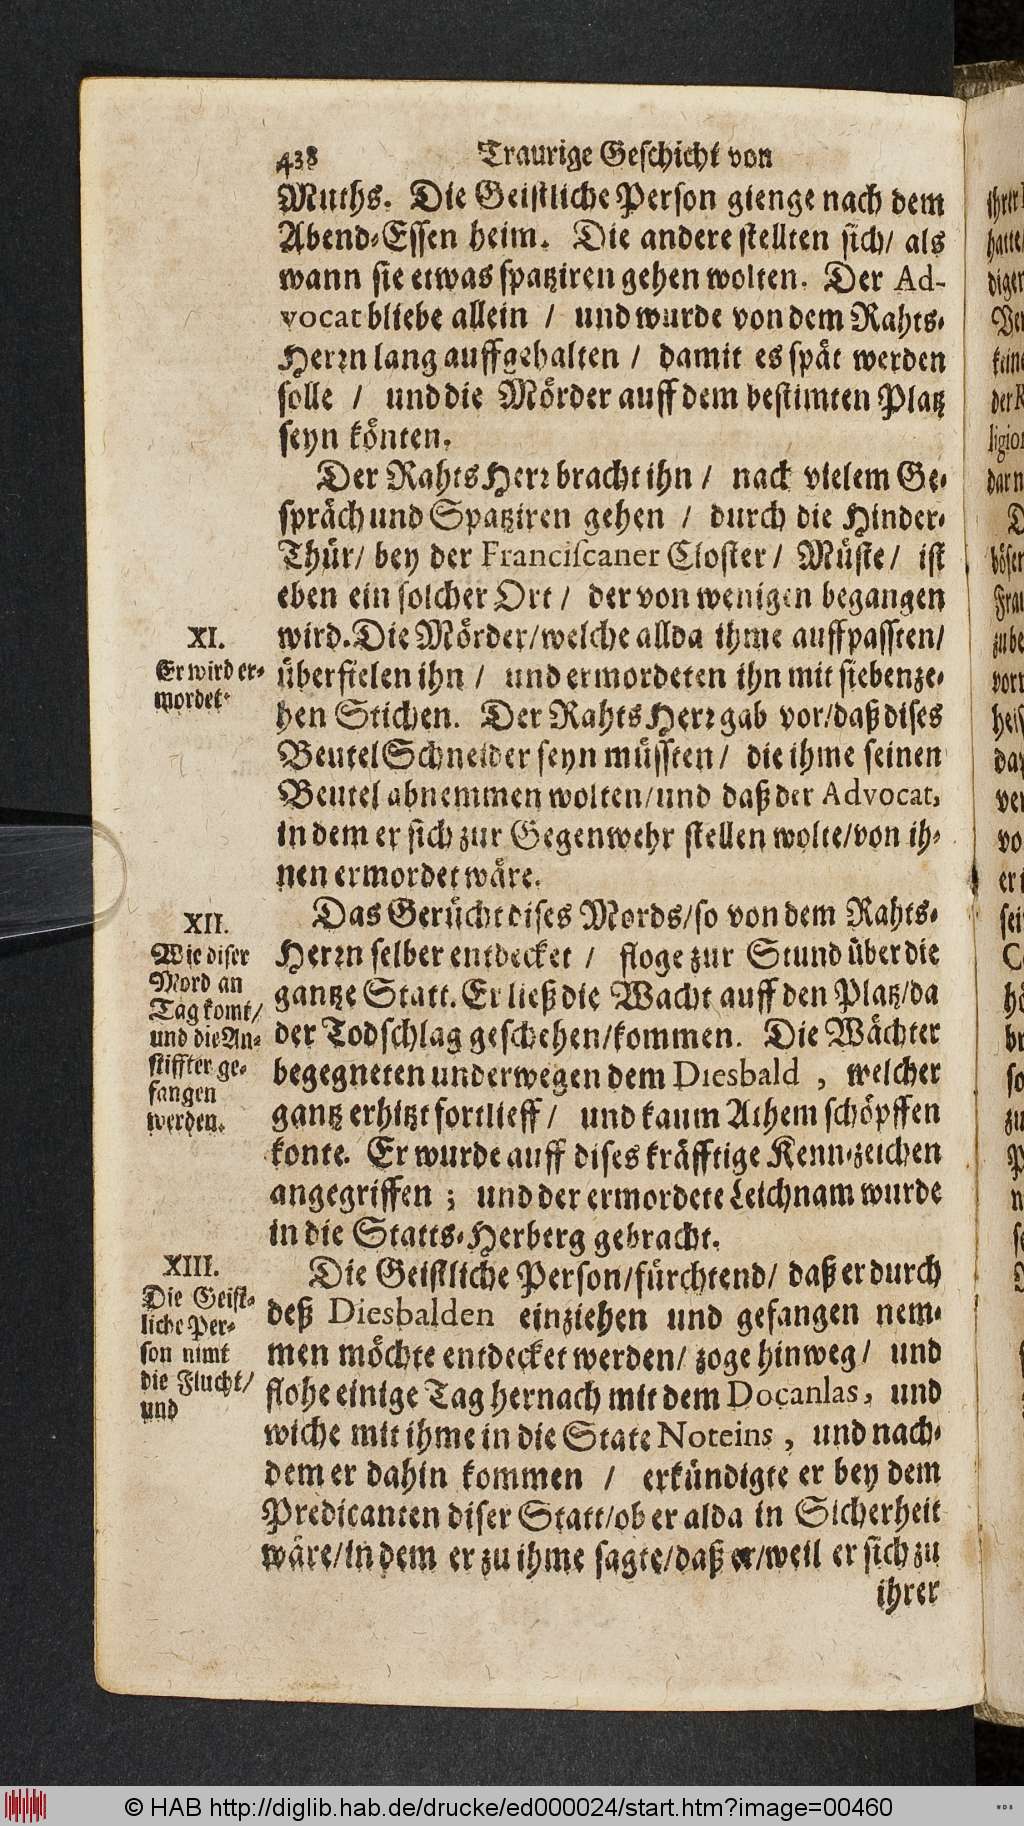 438 Traurige Geschicht von
Muths. Die Geistliche Person gienge nach dem
Abend-Essen heim. Die andere stellten sich/ als
wann sie etwas spatziren gehen wolten. Der Ad-
vocat bliebe allein / und wurde von dem Rahts-
Herrn lang auffgehalten / damit es spåt werden
solle / und die Mörder auff dem bestimten Platz
seyn könten.
Der Rahts Herr bracht ihn / nach vielem Ge-
spräch und Spatziren gehen / durch die Hinder-
Thür/ bey der Franciscaner Closter / Müste/ ist
eben ein solcher Ort / der von wenigen begangen
wird. Die Mörder/welche allda ihme auffpassten/
XI.
Er wird er-
mordet.
überfielen ihn / und ermordeten ihn mit siebenze-
hen Stichen. Der Rahts Herr gab vor/daß dises
Beutel Schneider seyn müssten / die ihme seinen
Beutel abnemmen wolten/und daß der Advocat,
in dem er sich zur Gegenwehr stellen wolte/von ih-
nen ermordet wåre.
XII.
Wie diser
Mord an
Tag komt/
und die An-
stiffter ge-
fangen
werden.
Das Gerücht dises Mords/so von dem Rahts-
Herrn selber entdecket / floge zur Stund über die
gantze Statt. Er ließ die Wacht auff den Platz/da
der Todschlag geschehen/kommen. Die Wächter
begegneten underwegen dem Diesbald , welcher
gantz erhitzt fortlieff / und kaum Athem schöpffen
konte. Er wurde auff dises kräfftige Kenn-zeichen
angegriffen ; und der ermordete Leichnam wurde
in die Statts-Herberg gebracht.
XIII.
Die Geist-
liche Per-
son nimt
die Flucht/
und
Die Geistliche Person/fürchtend/ daß er durch
deß Diesbalden einziehen und gefangen nem-
men möchte entdecket werden/ zoge hinweg / und
flohe einige Tag hernach mit dem Docanlas, und
wiche mit ihme in die State Noteins , und nach-
dem er dahin kommen / erkündigte er bey dem
Predicanten diser Statt/ob er alda in Sicherheit
wäre/in dem er zu ihme sagte/daß er/weil er sich zu
ihrer
© HAB http://diglib.hab.de/drucke/ed000024/start.htm?image=00460